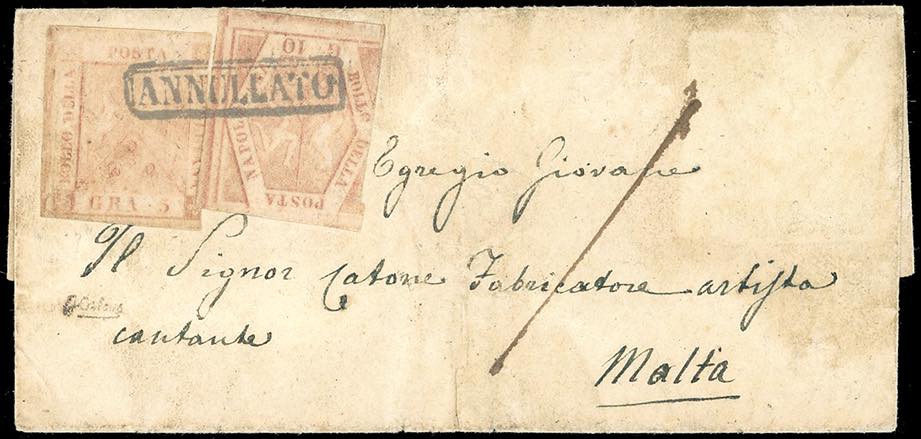 POSTA
BOLLO DELLA
GRA 5
G 10
BOLLO DELLA
POSTA
NAPOL
ANNULLATO
Egregio Giovane
Il Signor Catone Fabricatore artista
cantante
Malta